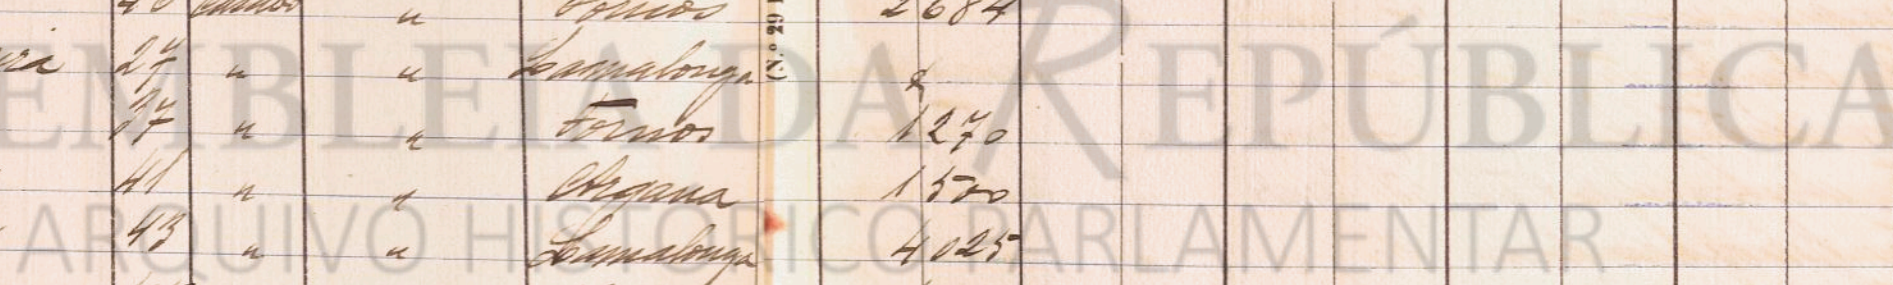 40 " Fornos 2684
27 " " Lamalonga
37 " " Fornos 1270
41 " " Argana 1500
43 " " Lamalonga 4025
(N.º 29
EMBLEIA DA REPÚBLICA
ARQUIVO HISTÓRICO PARLAMENTAR